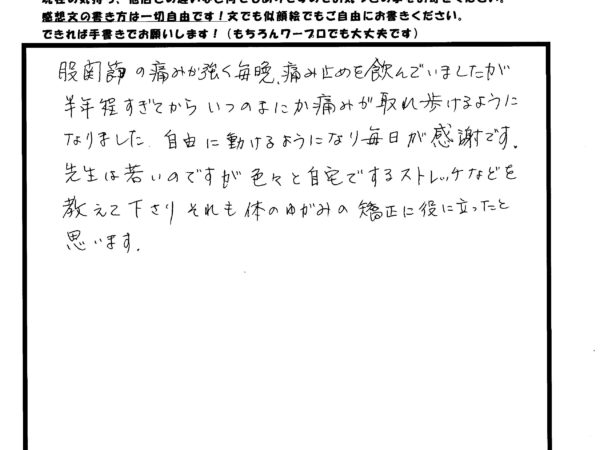 感想文の書き方は一切自由です！文でも似顔絵でもご自由にお書きください。
できれば手書きでお願いします！（もちろんワープロでも大丈夫です）
股関節の痛みが強く毎晩、痛み止めを飲んでいましたが
半年程すぎてからいつのまにか痛みが取れ歩けるように
なりました。自由に動けるようになり毎日が感謝です。
先生は若いのですが色々と自宅でするストレッチなどを
教えて下さりそれも体のゆがみの矯正に役に立ったと
思います。